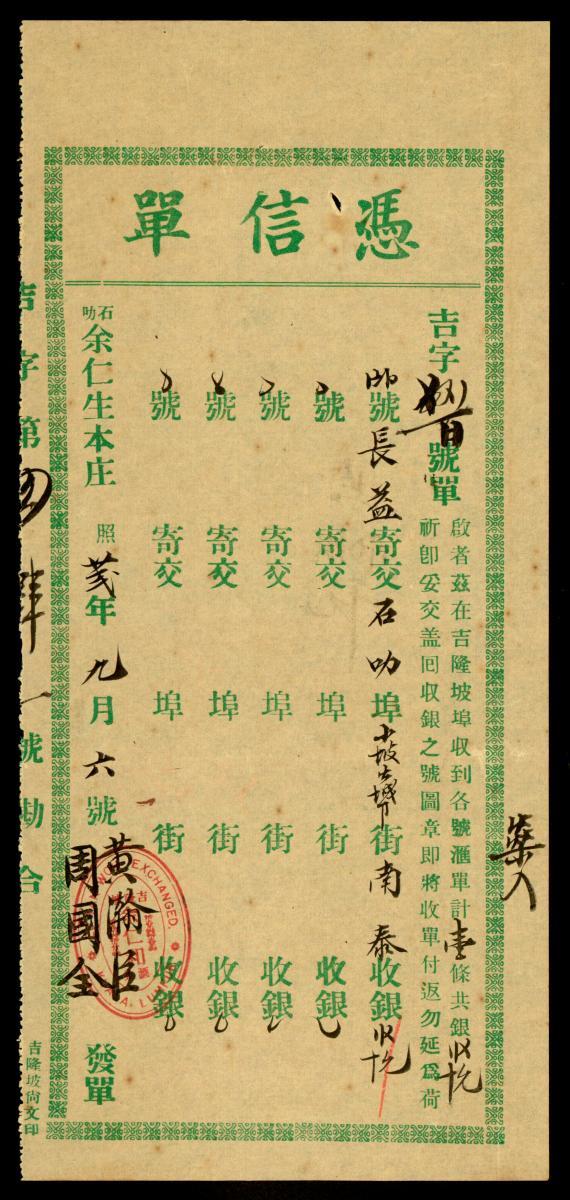 憑信單
吉字 號單
啟者茲在吉隆坡埠收到各號滙單計壹條共銀
祈卽妥交盖回收銀之號圖章即將收單付返勿延爲荷
號長益寄交石叻埠小坡 街南泰收銀
號 寄交 埠 街 收銀
號 寄交 埠 街 收銀
號 寄交 埠 街 收銀
號 寄交 埠 街 收銀
石叻余仁生本庄 照 年九月六號 發單
黃 臣
周國全
EXCHANGED
吉字第 號勘合
吉隆坡尙文印